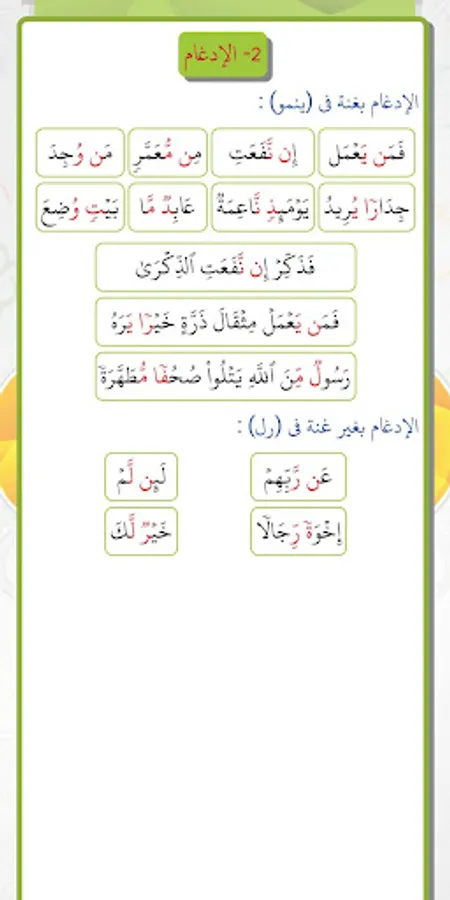 2- الإدغام
الإدغام بغنة فى (ينمو) :
فَمَن يَعْمَل إِن نَّفَعَتِ مِن مُّعَمَّرٍ مَن وُجِدَ
جِدَارًا يُرِيدُ يَوْمَئِذٍ نَّاعِمَةٌ عَابِدٌ مَّا بَيْتٍ وُضِعَ
فَذَكِّرْ إِن نَّفَعَتِ ٱلذِّكْرَىٰ
فَمَن يَعْمَلْ مِثْقَالَ ذَرَّةٍ خَيْرًا يَرَهُ
رَسُولٌ مِّنَ ٱللَّهِ يَتْلُوا۟ صُحُفًا مُّطَهَّرَةً
الإدغام بغير غنة فى (رل) :
عَن رَّبِّهِمْ لَئِن لَّمْ
إِخْوَةً رِّجَالًا خَيْرٌ لَّكَ